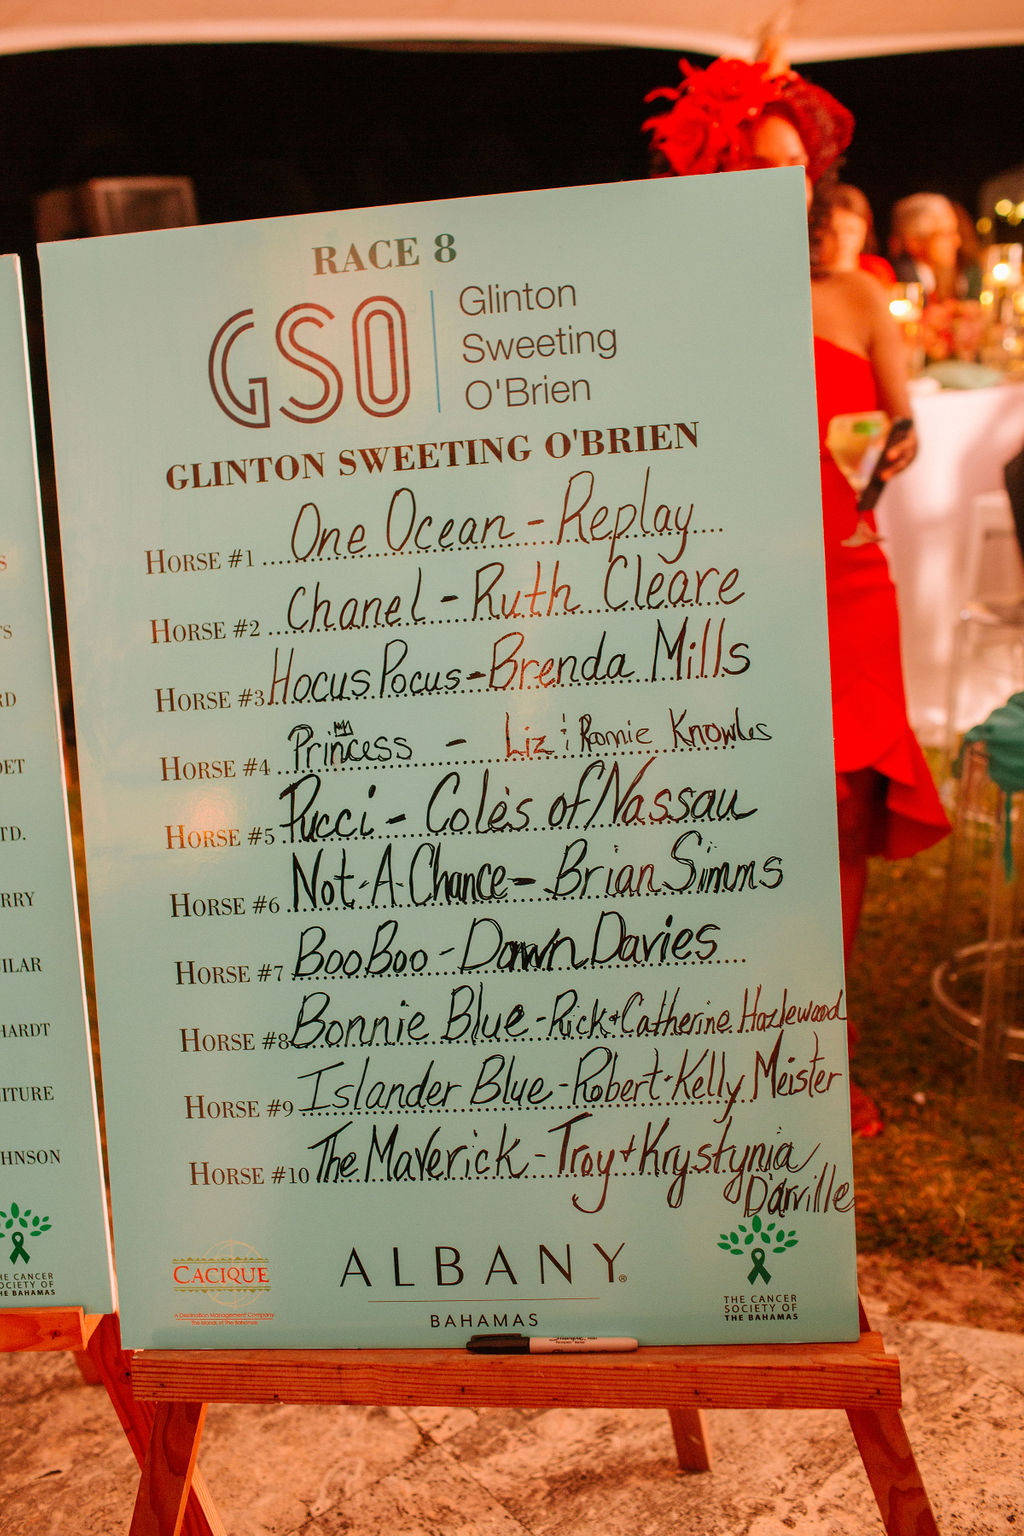 RACE 8
GSO
Glinton
Sweeting
O'Brien
GLINTON SWEETING O'BRIEN
HORSE #1 One Ocean - Replay
HORSE #2 Chanel - Ruth Cleare
HORSE #3 Hocus Pocus - Brenda Mills
HORSE #4 Princess - Liz & Ronnie Knowles
HORSE #5 Pucci - Coles of Nassau
HORSE #6 Not-A-Chance - Brian Simms
HORSE #7 BooBoo - Dawn Davies
HORSE #8 Bonnie Blue - Rick + Catherine Hazlewood
HORSE #9 Islander Blue - Robert + Kelly Meister
HORSE #10 The Maverick - Troy + Krystynia
Darville
CACIQUE
A Destination Management Company
The Islands of The Bahamas
ALBANY®
BAHAMAS
THE CANCER
SOCIETY OF
THE BAHAMAS
S
TS
RD
DET
TD.
RRY
ILAR
HARDT
ITURE
HNSON
HE CANCER
OCIETY OF
HE BAHAMAS